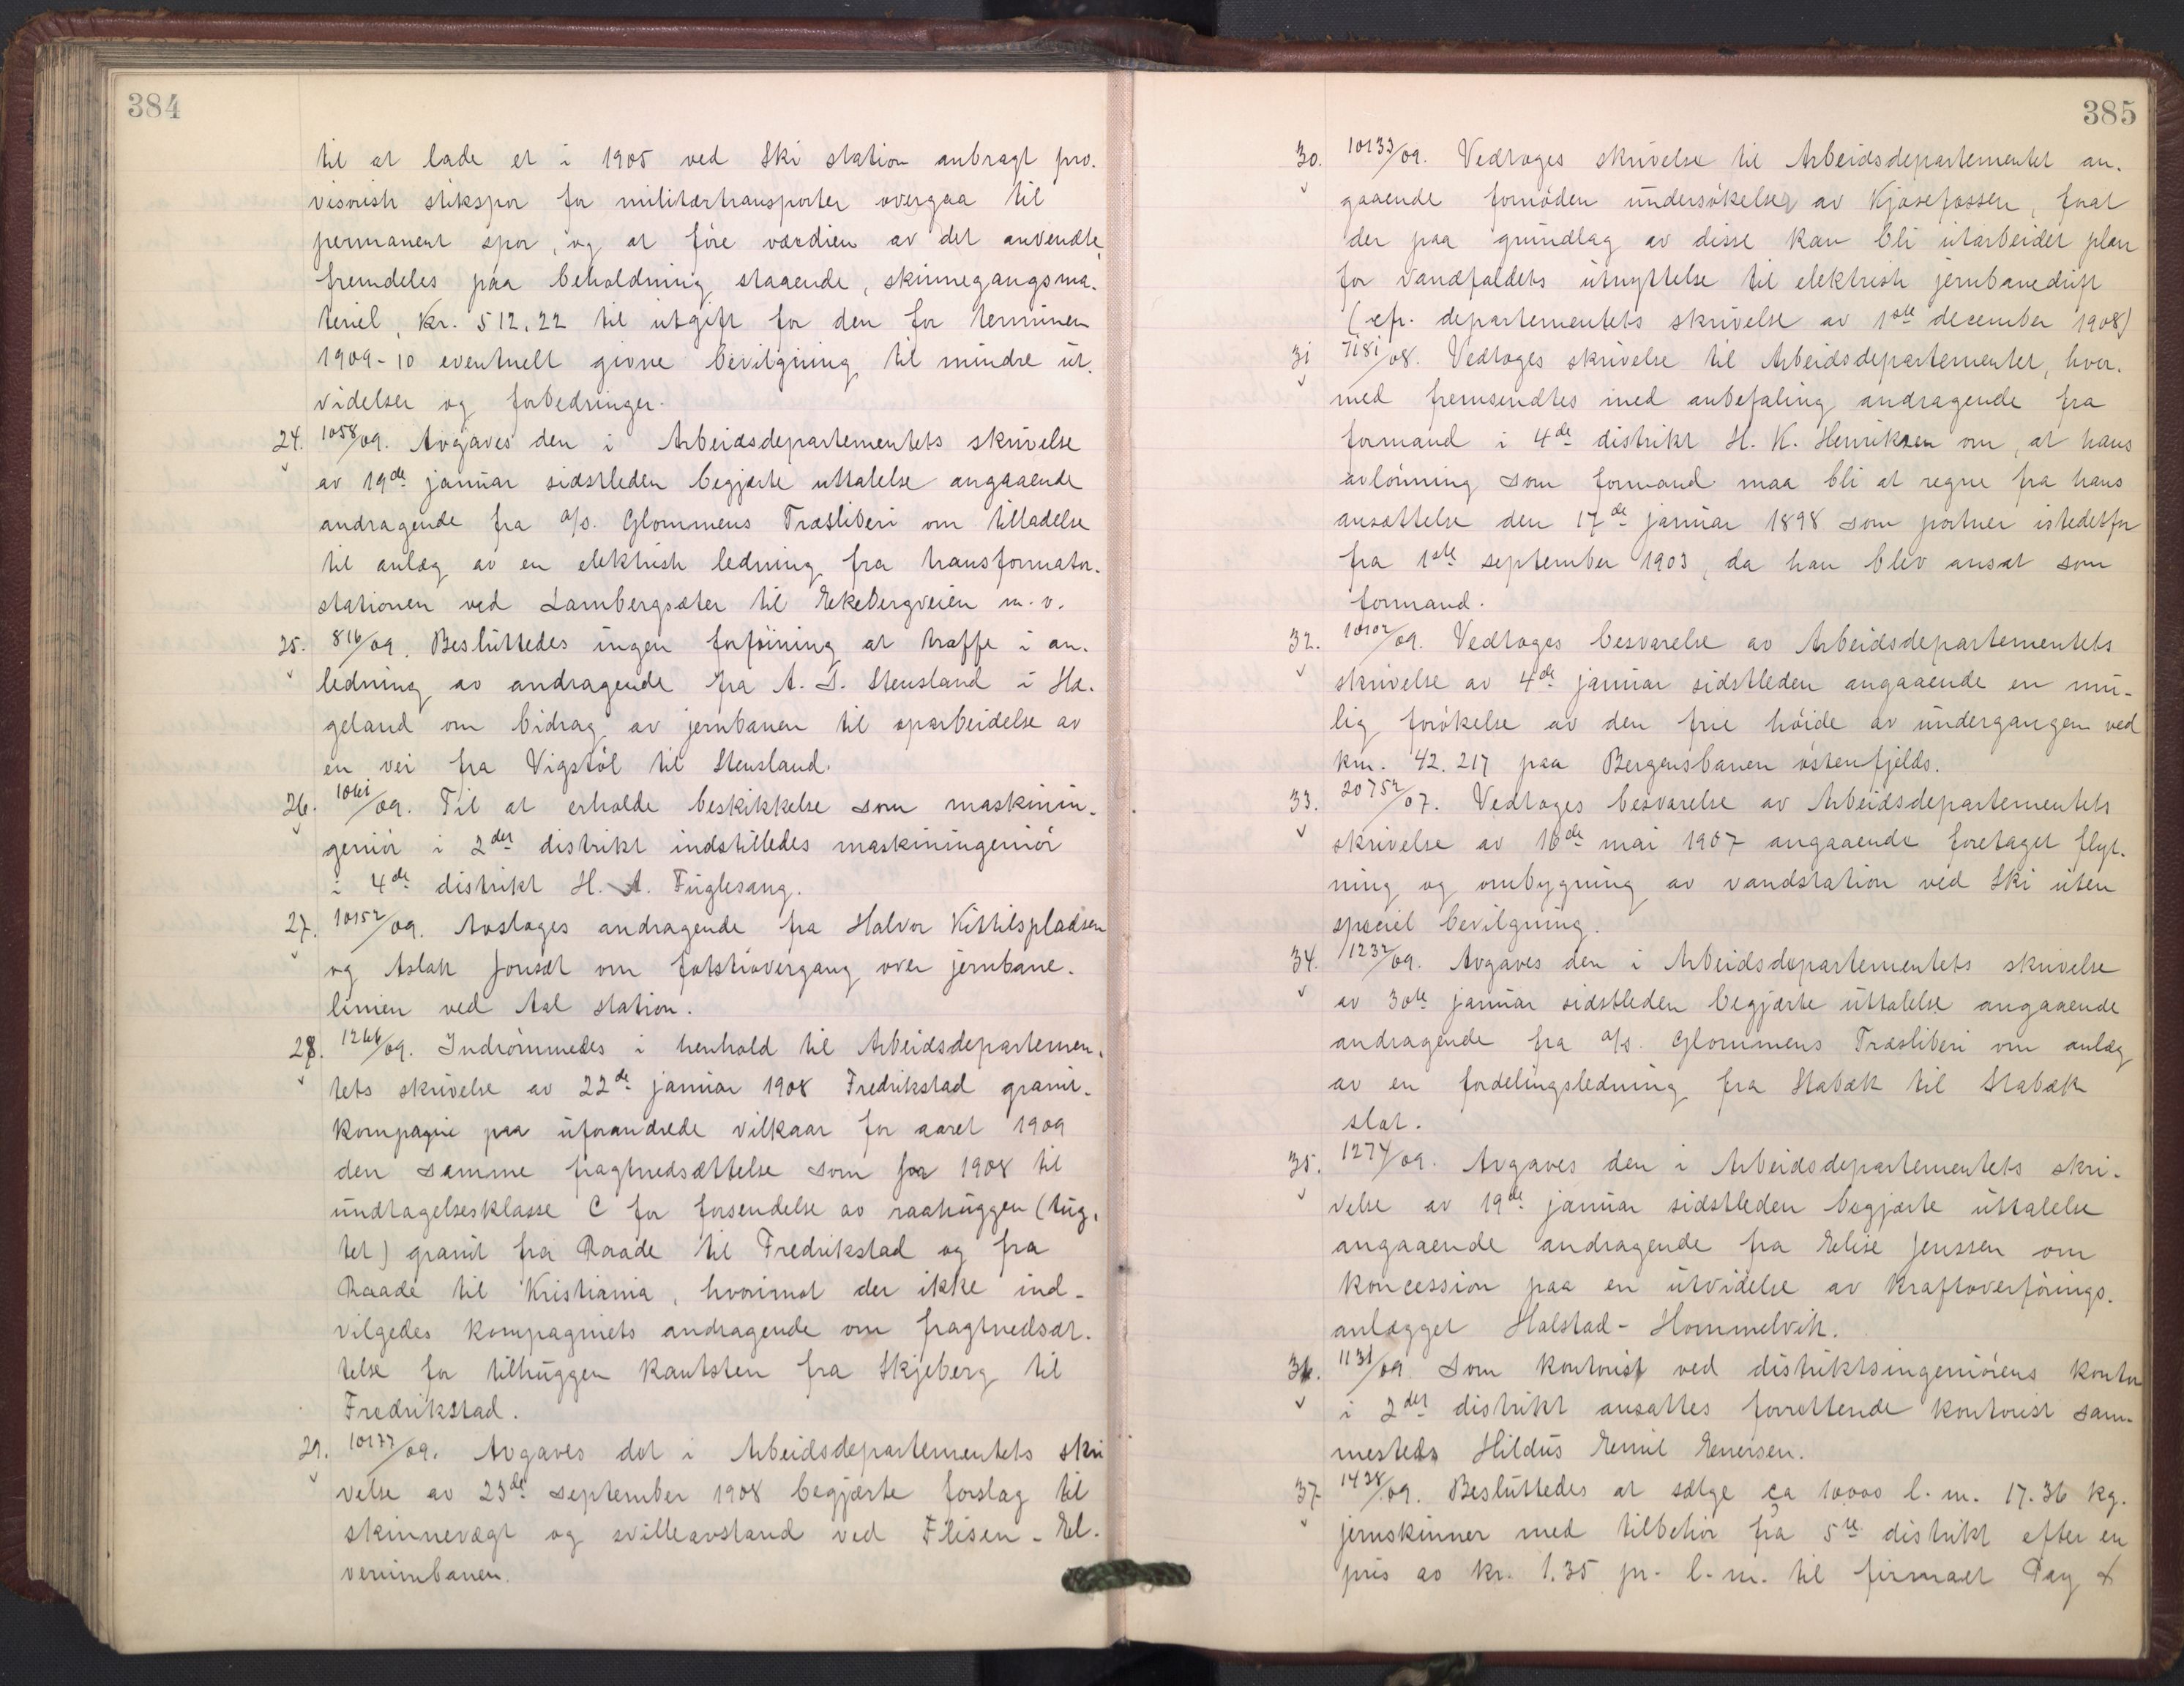 384
til at lade et i 1905 ved Ski station anbragt pro-
visorisk stikspor for militærtransporter overgaa til
permanent spor, og at føre værdien av det anvendte,
fremdeles paa beholdning staaende, skinnegangsma-
teriel, kr. 512,22 til utgift for den for terminen
1909-10 eventuelt givne bevilgning til mindre ut-
videlser og forbedringer.
24. 1058/09. Avgaves den i Arbeidsdepartementets skrivelse
av 19de januar sidstleden begjærte uttalelse angaaende
andragende fra A/s. Glommens Træsliberi om tilladelse
til anlæg av en elektrisk ledning fra transformator-
stationen ved Lambergsæter til Ekebergveien m.v.
25. 816/09. Besluttedes ingen forføining at træffe i an-
ledning av andragende fra A. T. Stensland i Hæ-
geland om bidrag av jernbanen til oparbeidelse av
en vei fra Vigstøl til Stensland.
26. 1061/09. Til at erholde beskikkelse som maskinin-
geniør i 2det distrikt indstilledes maskiningeniør
i 4de distrikt H. A. Fuglesang.
27. 10152/09. Avsloges andragende fra Halvor Kittilspladsen
og Aslak Jonsæt om fotstiovergang over jernbane-
linien ved Aal station.
28. 1266/09. Indrømmedes i henhold til Arbeidsdepartemen-
tets skrivelse av 22de januar 1908 Fredrikstad granit-
kompagni paa uforandrede vilkaar for aaret 1909
den samme fragtnedsættelse som for 1908 til
undtagelsesklasse C for forsendelse av raahuggen (tug-
tet) granit fra Raade til Fredrikstad og fra
Raade til Kristiania, hvorimot der ikke ind-
vilgedes kompagniets andragende om fragtnedsæt-
telse for tilhuggen kantsten fra Skjeberg til
Fredrikstad.
29. 10177/09. Avgaves det i Arbeidsdepartementets skri
velse av 23de september 1908 begjærte forslag til
skinnevægt og svilleavstand ved Flisen-El-
verumbanen.
385
30. 10133/09. Vedtoges skrivelse til Arbeidsdepartementet an-
gaaende fornøden undersøkelser av Kjosefossen, forat
der paa grundlag av disse kan bli utarbeidet plan
for vandfaldets utnyttelse til elektrisk jernbanedrift
(cfr. departementets skrivelse av 1ste december 1908)
31 7181/08. Vedtoges skrivelse til Arbeidsdepartementet, hvor-
med fremsendtes med anbefaling andragende fra
formand i 4de distrikt H. K. Henriksen om, at hans
avlønning som formand maa bli at regne fra hans
ansættelse den 17de januar 1898 som portner istedetfor
fra 1ste september 1903, da han blev ansat som
formand.
32. 10102/09. Vedtoges besvarelse av Arbeidsdepartementets
skrivelse av 4de januar sidstleden angaaende en mu-
lig forøkelse av den frie høide av undergangen ved
km. 42.217 paa Bergensbanen østenfjelds.
33. 20752/07. Vedtoges besvarelse av Arbeidsdepartementets
skrivelse av 16de mai 1907 angaaende foretaget flyt-
ning og ombygning av vandstation ved Ski uten
speciel bevilgning.
34. 1232/09. Avgaves den i Arbeidsdepartementets skrivelse
av 30te januar sidstleden begjærte uttalelse angaaende
andragende fra A/s. Glommens Træsliberi om anlæg
av en fordelingsledning fra Stabæk til Stabæk
slot.
35. 1274/09. Avgaves den i Arbeidsdepartementets skri-
velse av 19de januar sidstleden begjærte uttalelse
angaaende andragende fra Elise Jenssen om
koncession paa en utvidelse av kraftoverførings-
anlægget Halstad-Hommelvik.
36. 1131/09 Som kontorist ved distriktsingeniørens kontor
i 2det distrikt ansættes forrettende kontorist sam-
mesteds Hildus Emil Enersen.
37 1438/09. Besluttedes at sælge ca 10,000 l.m. 17.36 kg.
jernskinner med tilbehør fra 5te distrikt efter en
pris av kr. 1.35 pr. l.m. til firmaet Pay &